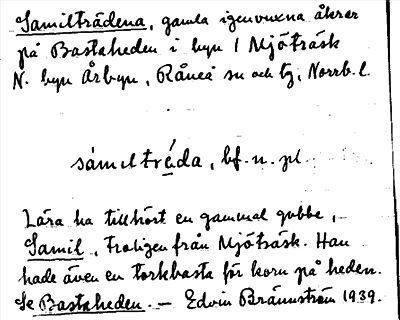 Samilträdena, gamla igenvuxna åkrar
på Bastaheden i byn / Mjöträsk
N. byn Årbyn, Råneå sn och tg, Norrb. l.
sámıltrǻda, bf. n. pl.
Lära ha tillhört en gammal gubbe,
Samil, troligen från Mjöträsk. Han
hade även en torkbasta för korn på heden.
Se Bastaheden. — Edvin Brännström 1939.